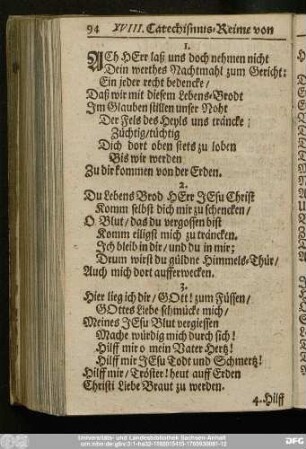 94 XVIII. Catechismus-Reime von
1.
ACh HErr laß uns doch nehmen nicht
Dein werthes Nachtmahl zum Gericht:
Ein jeder recht bedencke /
Daß wir mit diesem Lebens-Brodt
Im Glauben stillen unser Noht
Der Fels des Heyls uns träncke;
Züchtig/tüchtig
Dich dort oben stets zu loben
Bis wir werden
Zu dir kommen von der Erden.
2.
Du Lebens Brod HErr JEsu Christ
Komm selbst dich mir zu schencken /
O Blut / das du vergossen bist
Komm eiligst mich zu träncken.
Ich bleib in dir / und du in mir;
Drum wirst du güldne Himmels-Thür/
Auch mich dort aufferwecken.
3.
Hier lieg ich dir / GOtt! zum Füssen /
GOttes Liebe schmücke mich /
Meines JEsu Blut vergiessen
Mache würdig mich durch sich!
Hilff mir o mein Vater Hertz!
Hilff mir JEsu Todt und Schmertz!
Hilff mir / Tröster! heut auff Erden
Christi Liebe Braut zu werden.
4. Hilff
Universitäts- und Landesbibliothek Sachsen-Anhalt
DFG